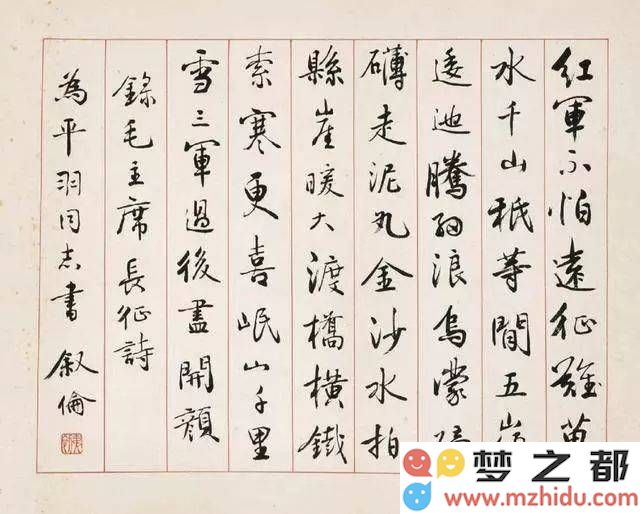 紅軍不怕遠征難萬
水千山秖等閒五嶺
逶迆騰細浪烏濛磅
礴走泥丸金沙水拍
縣崖暖大渡橋橫鐵
索寒更喜岷山千里
雪三軍過後盡開顏
錄毛主席長征詩
為平羽同志書 叙倫
梦之都
www.mzhidu.com